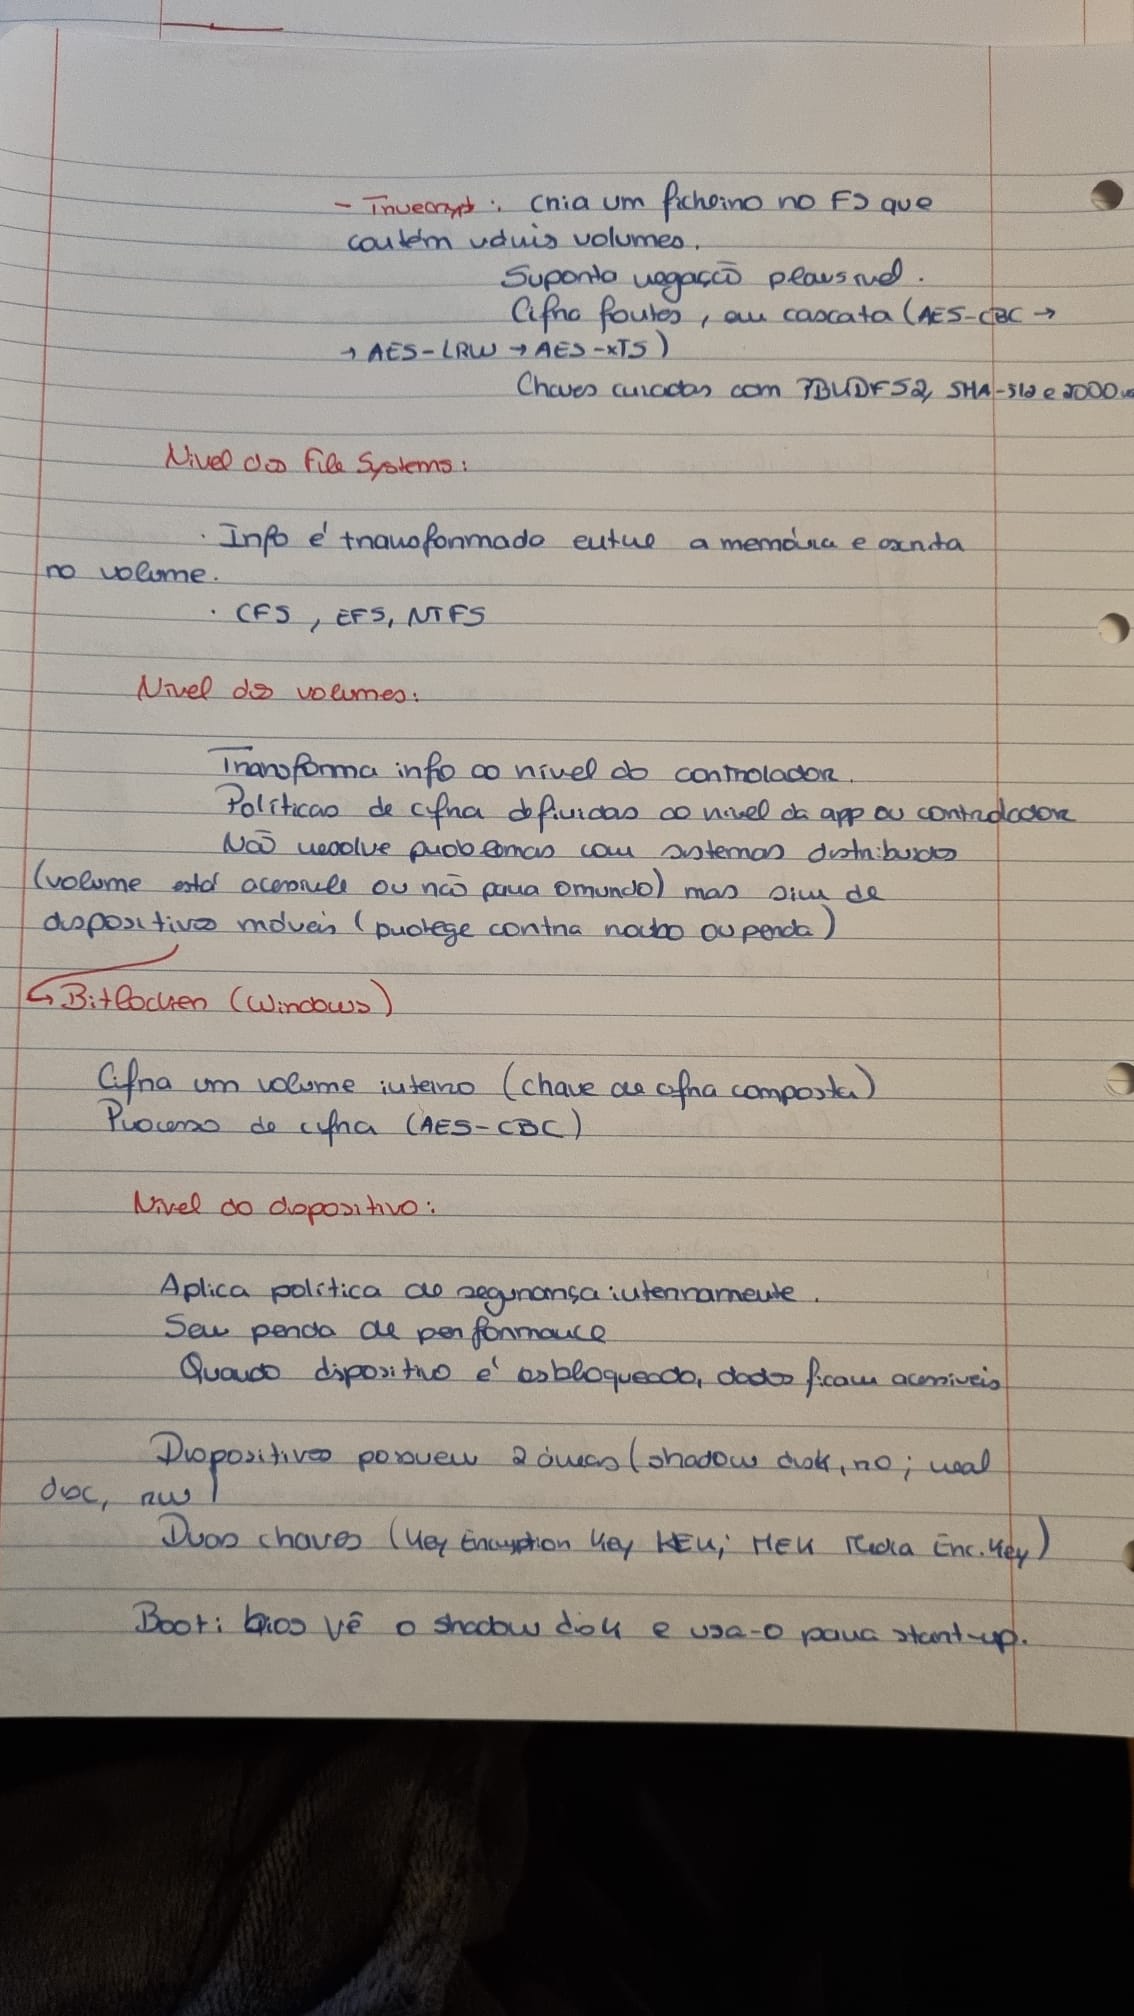 - Truecrypt: cria um ficheiro no FS que
contém vários volumes.
Suporta negação plausível.
Cifra fortes, ou cascata (AES-CBC →
→ AES-LRW → AES-XTS)
Chaves criadas com PBKDFS2, SHA-512 e 2000
Nível dos File Systems:
· Info é transformado entre a memória e escrita
no volume.
· CFS, EFS, NTFS
Nível dos volumes:
Transforma info ao nível do controlador.
Políticas de cifra definidas ao nível da app ou controlador
Não resolve problemas com sistemas distribuídos
(volume está acessível ou não para o mundo) mas sim de
dispositivos móveis (protege contra roubo ou perda)
↳ Bitlocker (Windows)
Cifra um volume inteiro (chave de cifra composta)
Processo de cifra (AES-CBC)
Nível do dispositivo:
Aplica política de segurança internamente.
Sem perda de performance
Quando dispositivo é desbloqueado, dados ficam acessíveis
Dispositivos possuem 2 áreas (shadow disk, ro; real
disc, rw)
Duas chaves (Key Encryption Key KEK; MEK Media Enc. Key)
Boot: bios vê o shadow disk e usa-o para start-up.